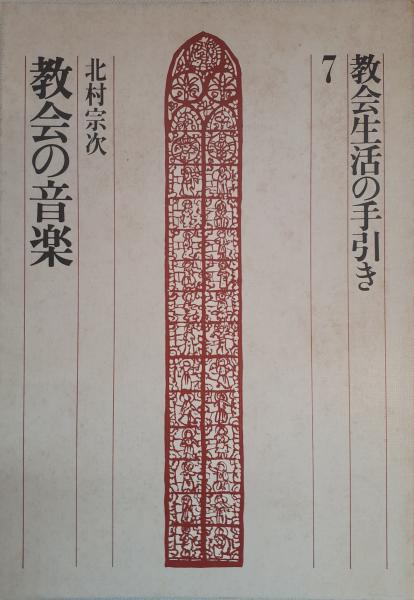 教会生活の手引き
7
北村宗次
教会の音楽